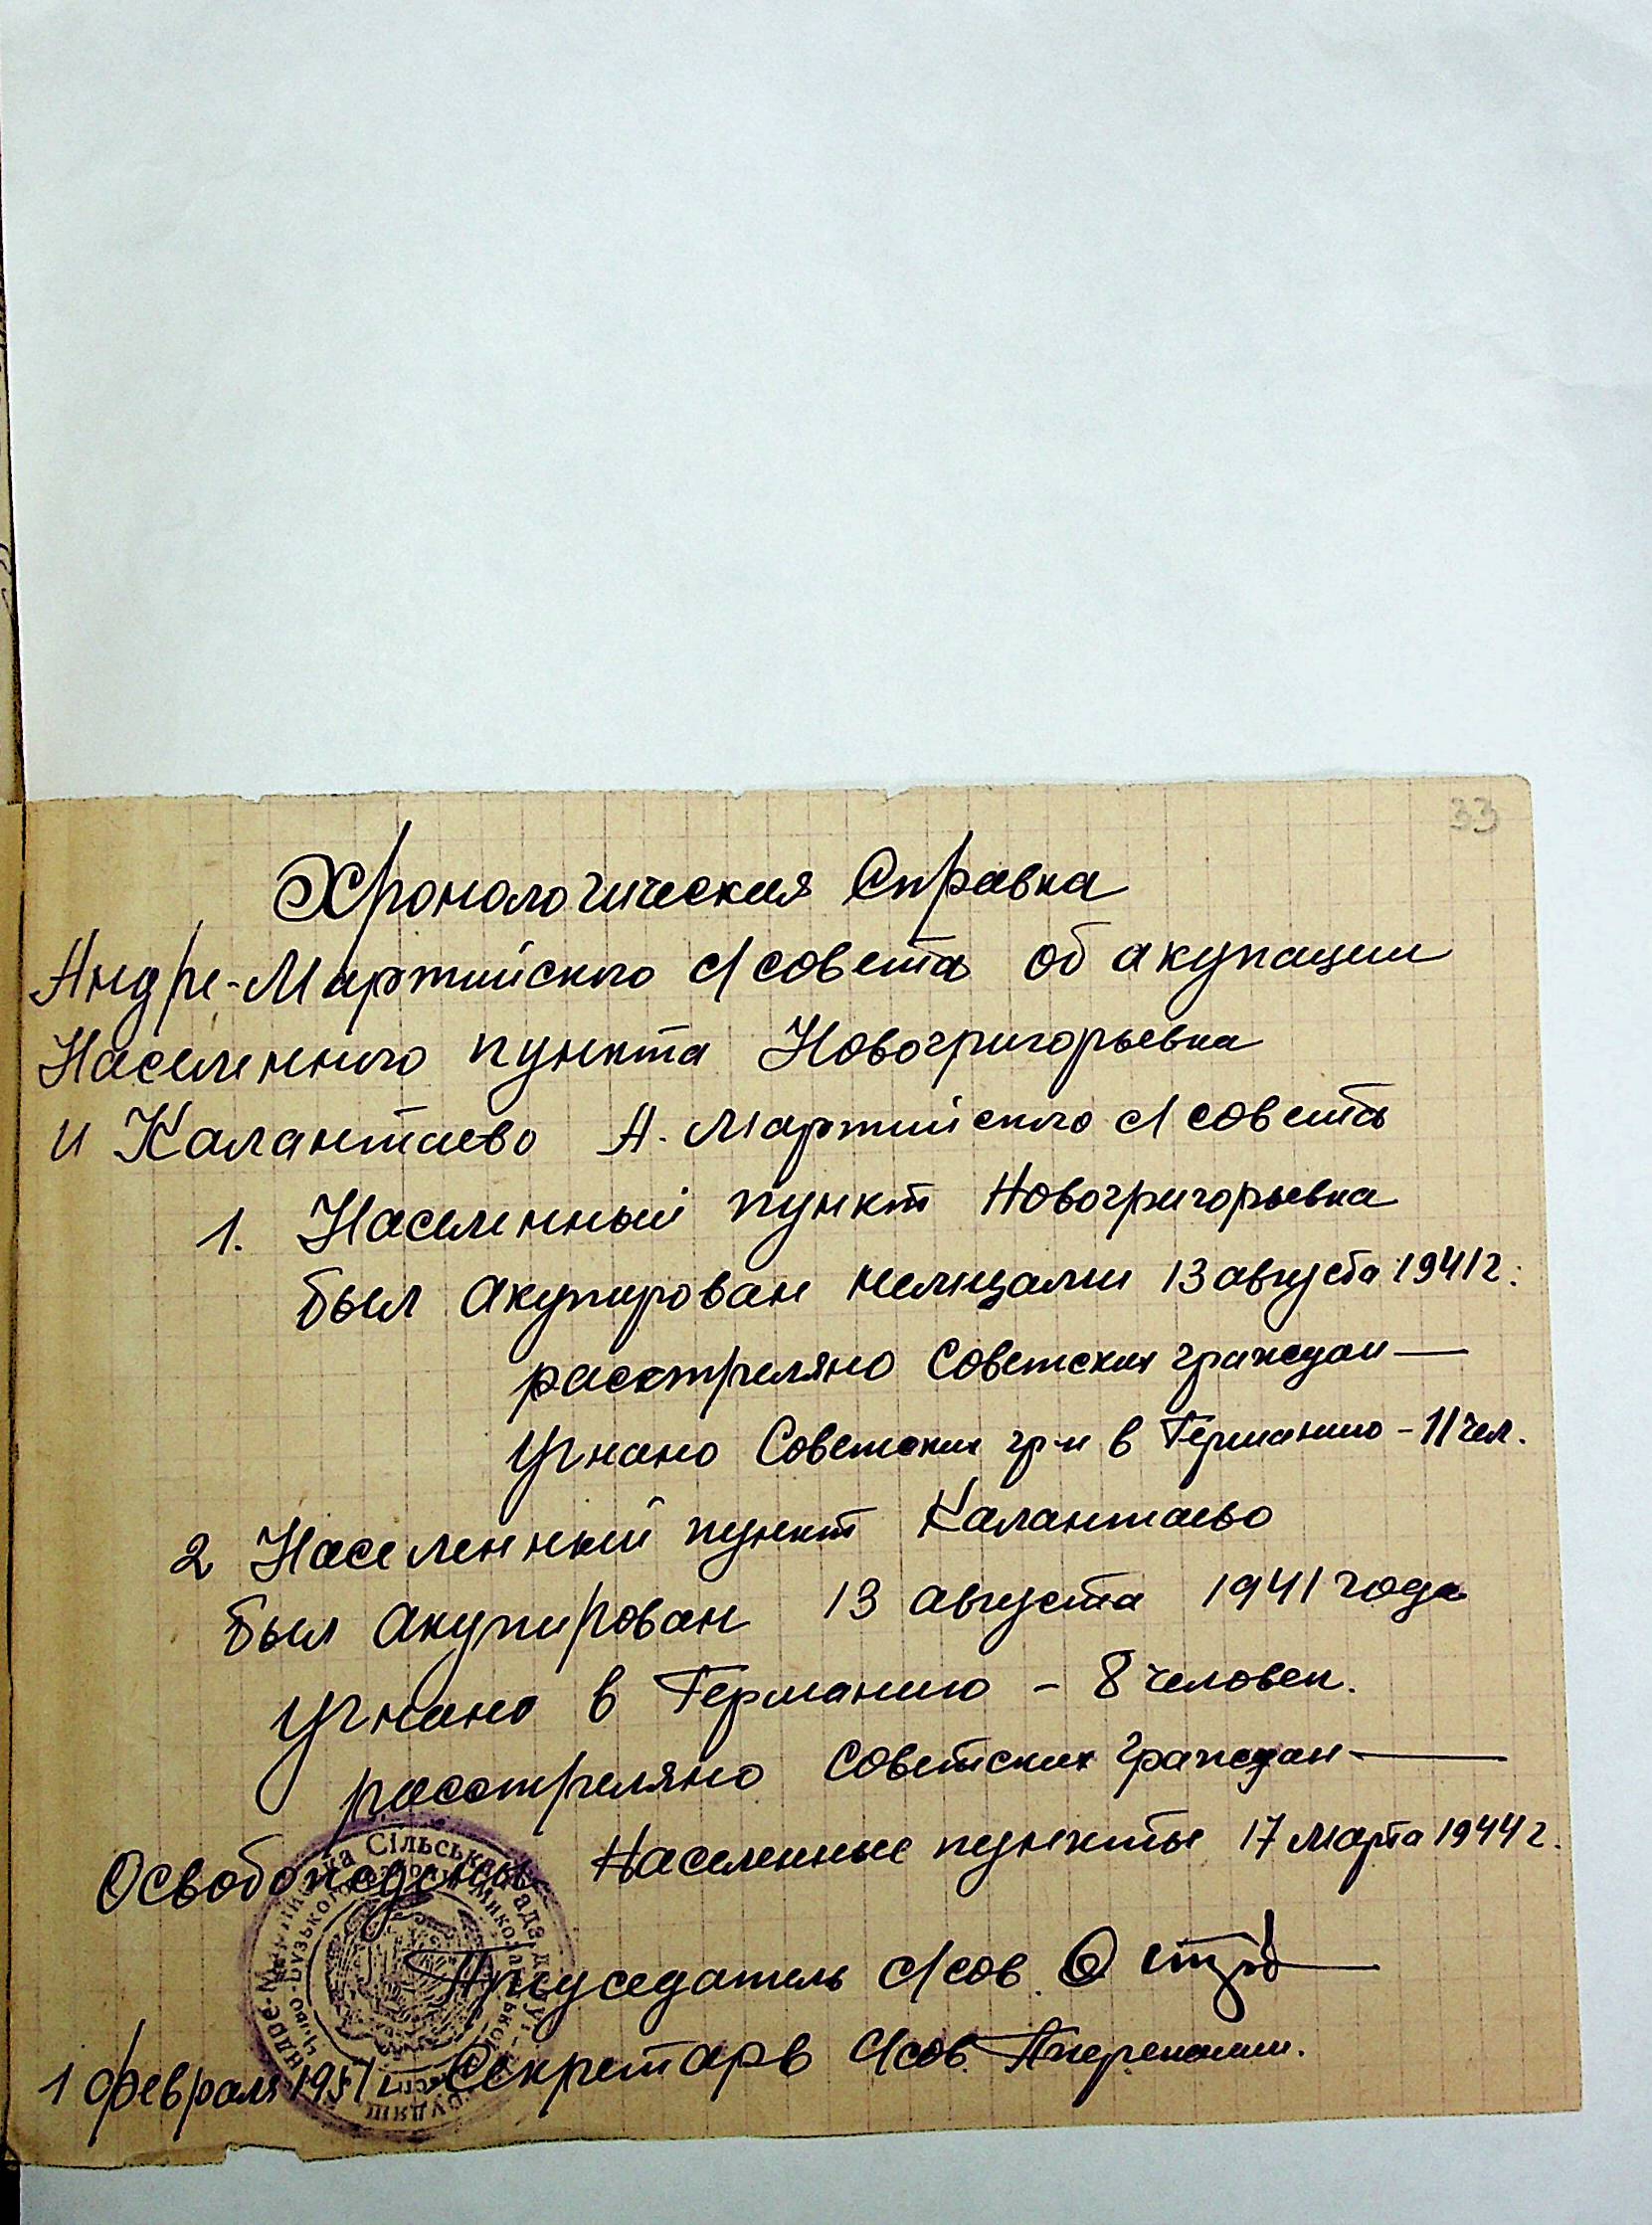 33
Хронологическая Справка
Андре-Мартийского с/совета об акупации
Населенного пункта Новогригорьевка
и Калантаево А. Мартийского с/совета
1. Населенный пункт Новогригорьевка
был акупирован немцами 13 августа 1941 г.
расстреляно Советских граждан —
Угнано Советских гр-н в Германию - 11 чел.
2 Населенный пункт Калантаево
был акупирован 13 августа 1941 года
Угнано в Германию - 8 человек.
расстреляно Советских граждан —
Освобождены Населенные пункты 17 марта 1944 г.
Председатель с/сов.
Секретарь с/сов.
1 февраля
Сільська Рада